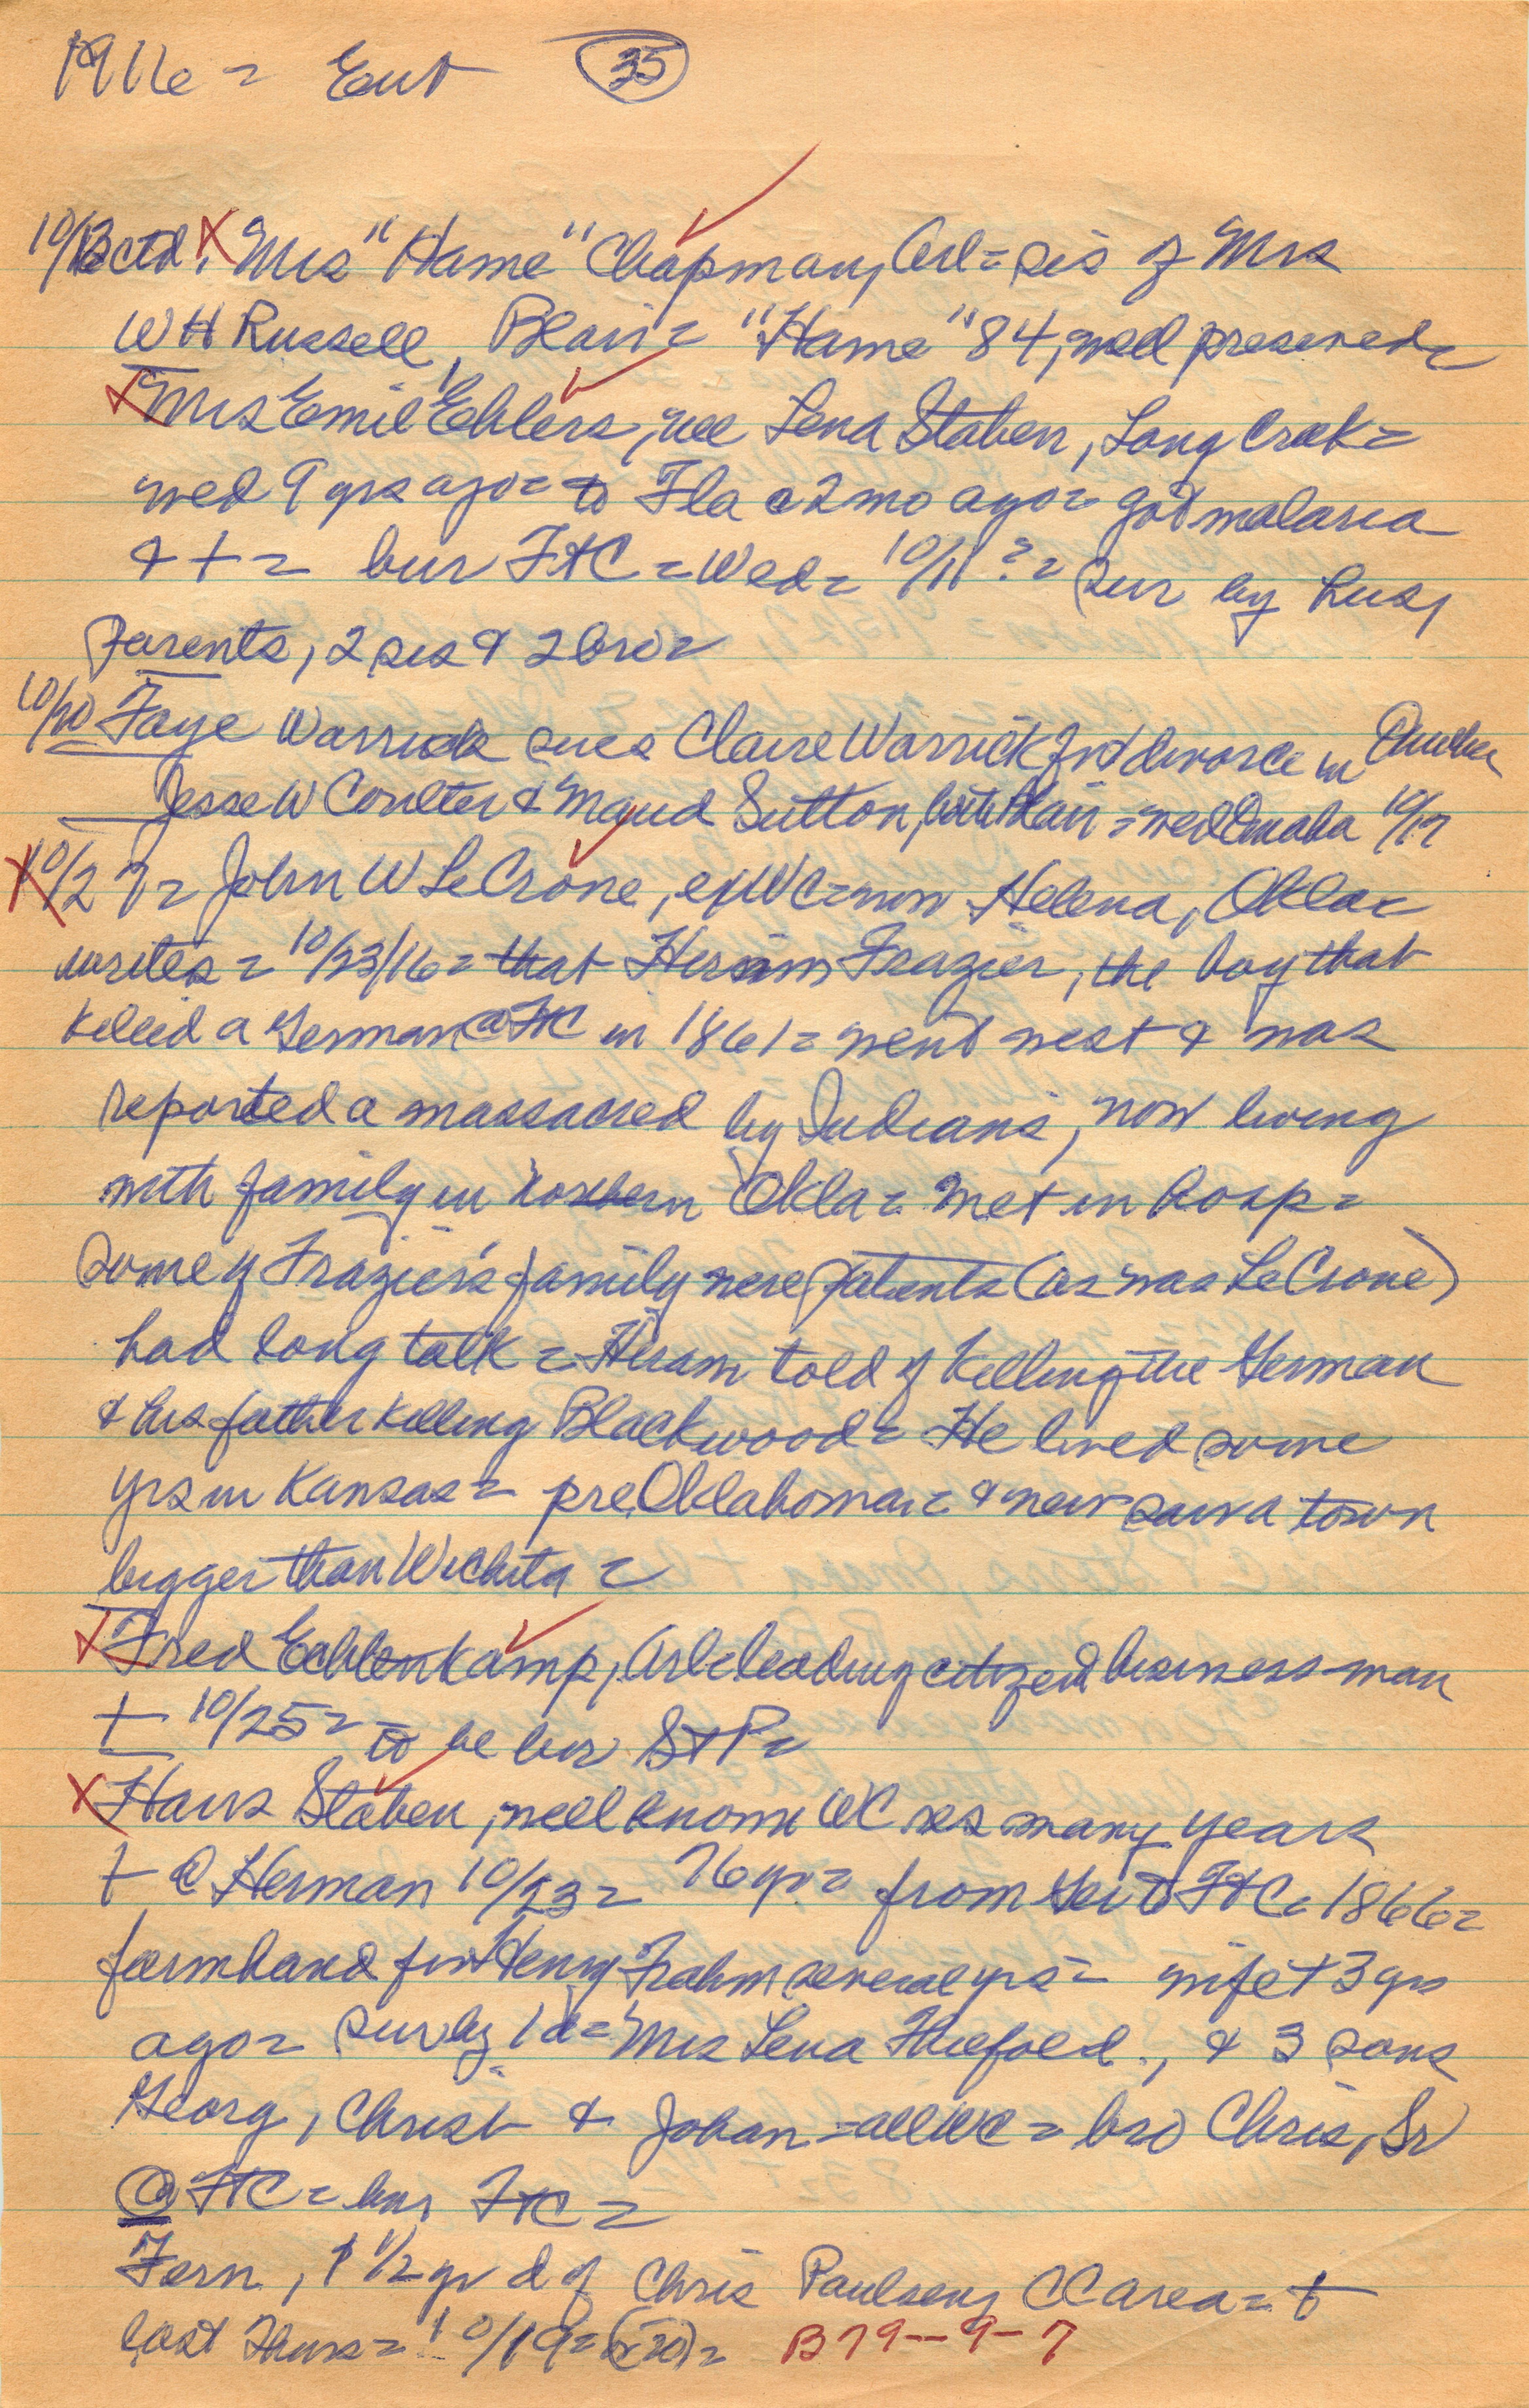 1916 = Ent (35)
10/13 ctd. X Mrs "Hame" Chapman, Arl = sis of Mrs
W H Russell, Blair = "Hame" 84, well preserved =
X Mrs Emil Ehlers, nee Lena Staben, Long Creek =
wed 9 yrs ago = to Fla c 2 mo ago = got malaria
& † = bur FtC = Wed = 10/11 ? = sur by hus,
Parents, 2 sis & 2 bro =
10/20 Faye Warrick sues Claire Warrick for divorce in Omaha
Jesse W Coulter & Maud Sutton, both Blair = wed Omaha 10/17
X 10/27 = John W LeCrone, exWC = now Helena, Okla =
writes = 10/23/16 = that Hiram Frazier, the boy that
killed a German @ FtC in 1861 = went west & was
reported a massacred by Indians, now living
with family in northern Okla = met in hosp =
some of Frazier's family were patients (as was LeCrone)
had long talk = Hiram told of killing the German
& his father killing Blackwood = He lived some
yrs in Kansas = pre Oklahoma = & never saw a town
bigger than Wichita =
X Fred Echtenkamp, Arl = leading citizen business-man
† 10/25 = to be bur St P =
X Hans Staben, well known WC res many years
† @ Herman 10/23 = 76 yr = from Ger to FtC = 1866 =
farmhand for Henry Frahm several yrs = wife † 3 yrs
ago = sur by 1 d = Mrs Lena Thiefold., & 3 sons
Georg, Christ & Johan = all WC = bro Chris, Sr
@ FtC = bur FtC =
Fern, 1 1/2 yr d of Chris Paulsen, CC area = †
last Thurs = 10/19 = (x20) = B79--9-7